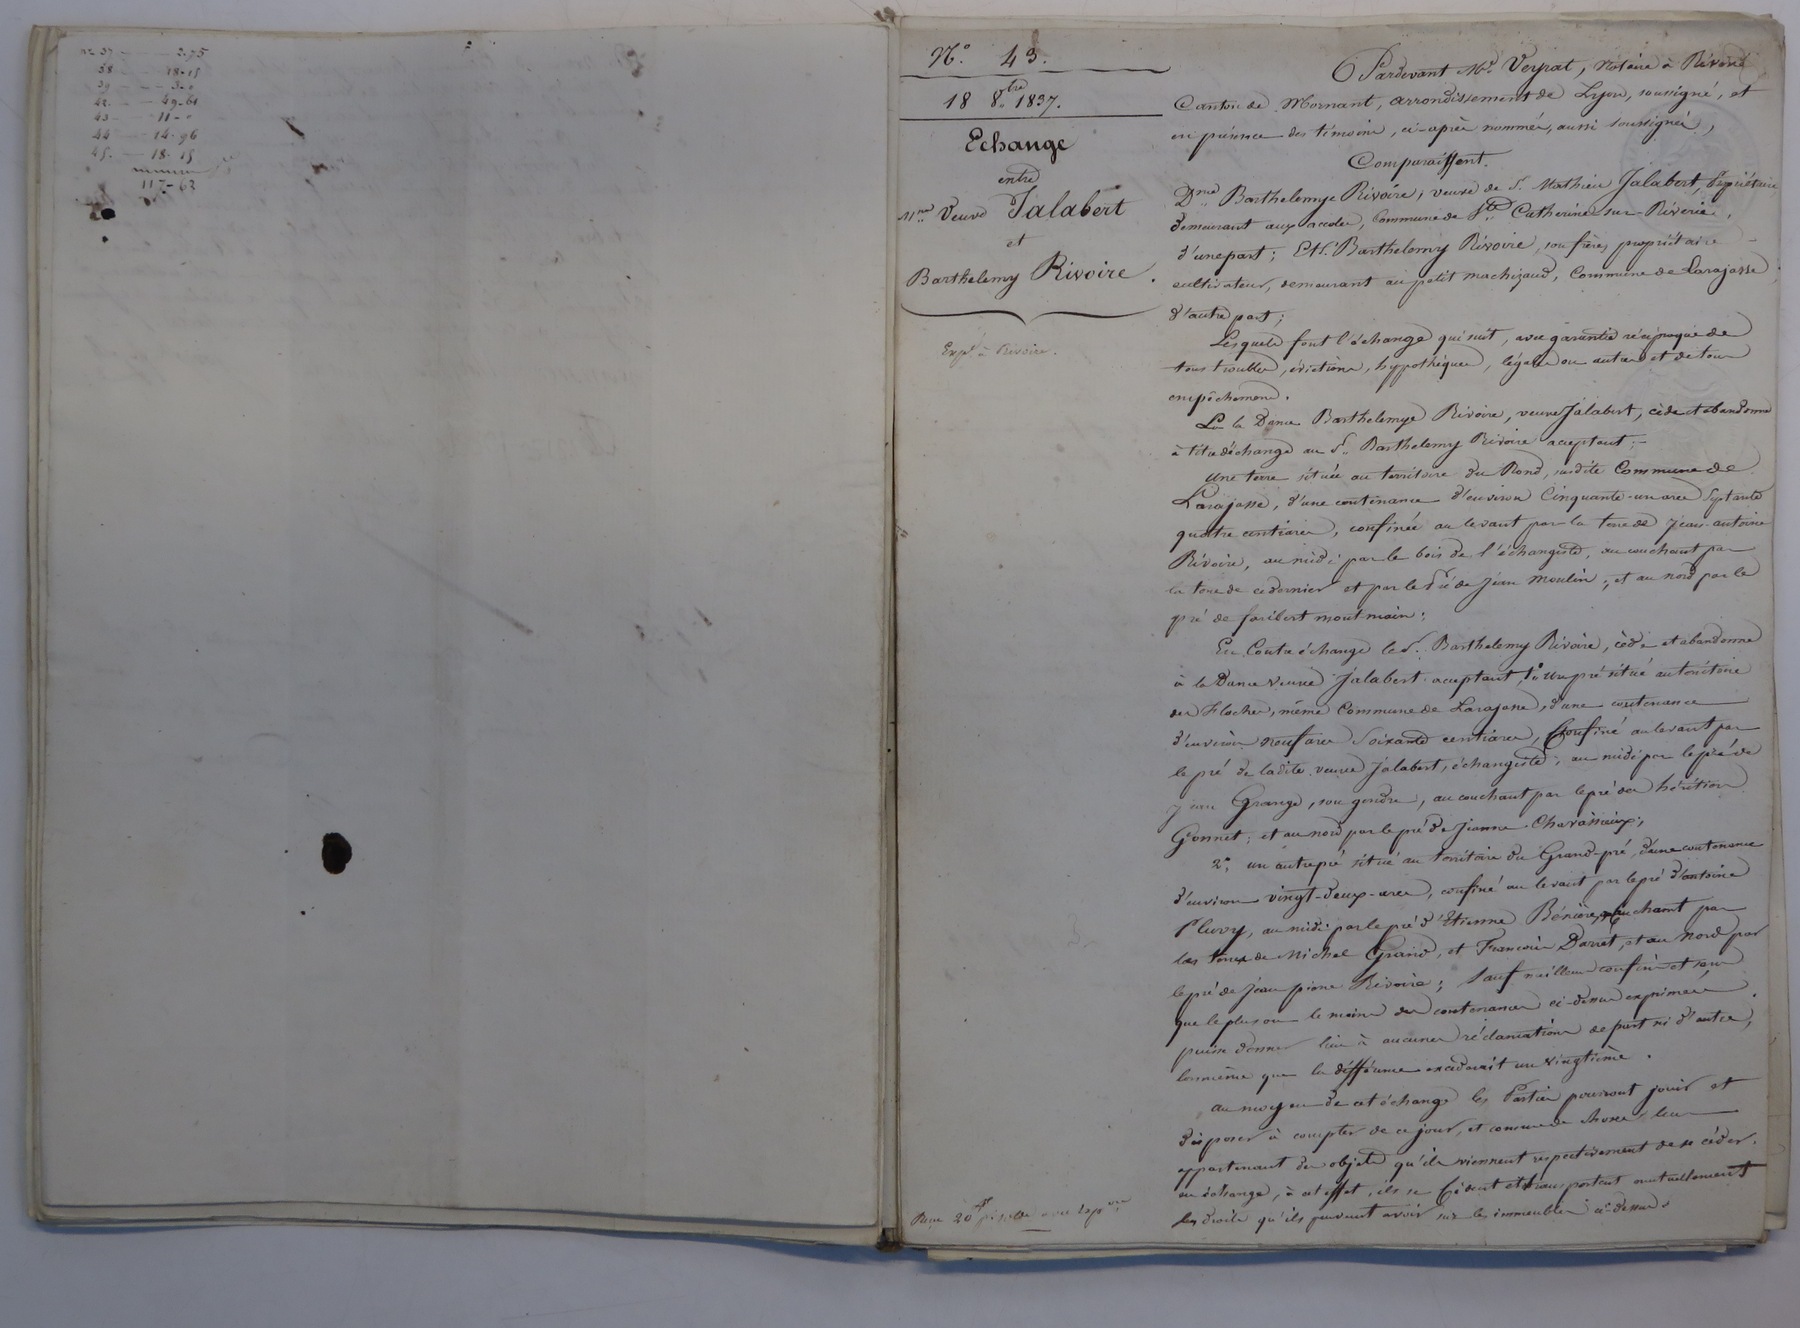 nos 37 — 2-75
38 — 18-15
39 — 3-0
42 — 49-61
43 — 11-0
44 — 14-96
45 — 18-15
117-62
N.o 43.
18 8bre 1837.
Echange
entre
Mme Veuve Jalabert
et
Barthelemy Rivoire.
Expé à Rivoire.
Pardevant Me Veyrat, Notaire à Riverie
Canton de Mornant, arrondissement de Lyon, soussigné, et
en présence des témoins, ci-après nommés, aussi soussignés,
Comparaissent.
Dme Barthelemye Rivoire, veuve de S. Mathieu Jalabert, Propriétaire
demeurant aux accoles, Commune de Ste Catherine sur Riverie,
d'une part; Et S. Barthelemy Rivoire, son frère, propriétaire
cultivateur, demeurant au petit machizaud, Commune de Larajasse
d'autre part;
Lesquels font l'échange qui suit, avec garantie réciproque de
tous troubles, évictions, hypothèques, légales ou autres et de tous
empêchemens.
La Dame Barthelemye Rivoire, veuve Jalabert, cède et abandonne
à titre d'échange au S. Barthelemy Rivoire acceptant;
une terre située au territoire du Rond, susdite Commune de
Larajasse, d'une contenance d'environ Cinquante-un ares Septante
quatre centiares, confinée au levant par la terre de jean-antoine
Rivoire, au midi par le bois de l'échangiste, au couchant par
la terre de ce dernier et par le pré de Jean Moulin; et au nord par le
pré de montmain;
En Contre échange le S. Barthelemy Rivoire, cède et abandonne
à la Dame veuve Jalabert acceptant, 1o un pré situé au territoire
des Floches, même Commune de Larajasse, d'une contenance
d'environ neuf ares Soixante centiares, Confiné au levant par
le pré de ladite veuve Jalabert, échangiste; au midi par le pré de
jean Grange, son gendre, au couchant par le pré des héritiers
Gonnet; et au nord par le pré de Jeanne Chavassieux;
2o un autre pré situé au territoire du Grand-pré, d'une contenance
d'environ vingt-deux ares, confiné au levant par le pré d'antoine
Pluvy, au midi par le pré d'Etienne Bénière, au couchant par
les terres de Michel Grand, et François Darret, et au nord par
le pré de Jean pierre Rivoire; Sauf meilleurs confins et sans
que le plus ou le moins des contenances ci-dessus exprimées
puisse donner lieu à aucunes réclamations de part ni d'autre,
lors même que la différence excéderait un vingtième.
au moyen de cet échange les Parties pourront jouir et
disposer à compter de ce jour, et comme de chose leur
appartenant des objets qu'ils viennent respectivement de se céder
en échange, à cet effet, ils se Cèdent et transportent mutuellement
les droits qu'ils peuvent avoir sur les immeubles ci-dessus